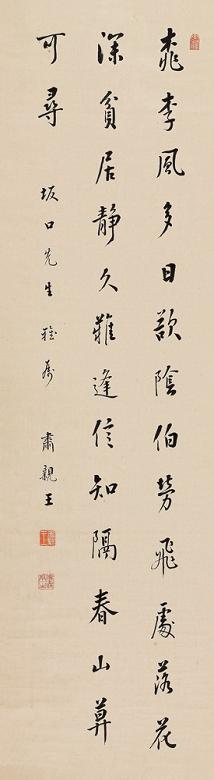 桃李風多日欲陰伯勞飛處落花
深貧居靜久難逢信知隔春山算
可尋
坂口先生雅屬
肅親王